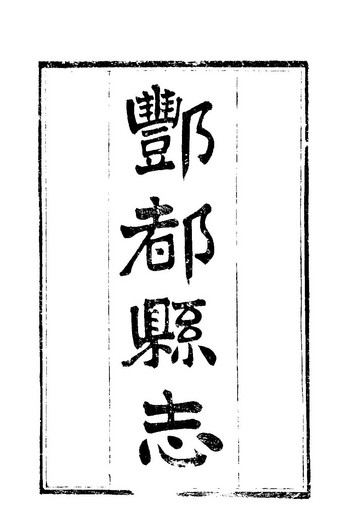 酆都縣志